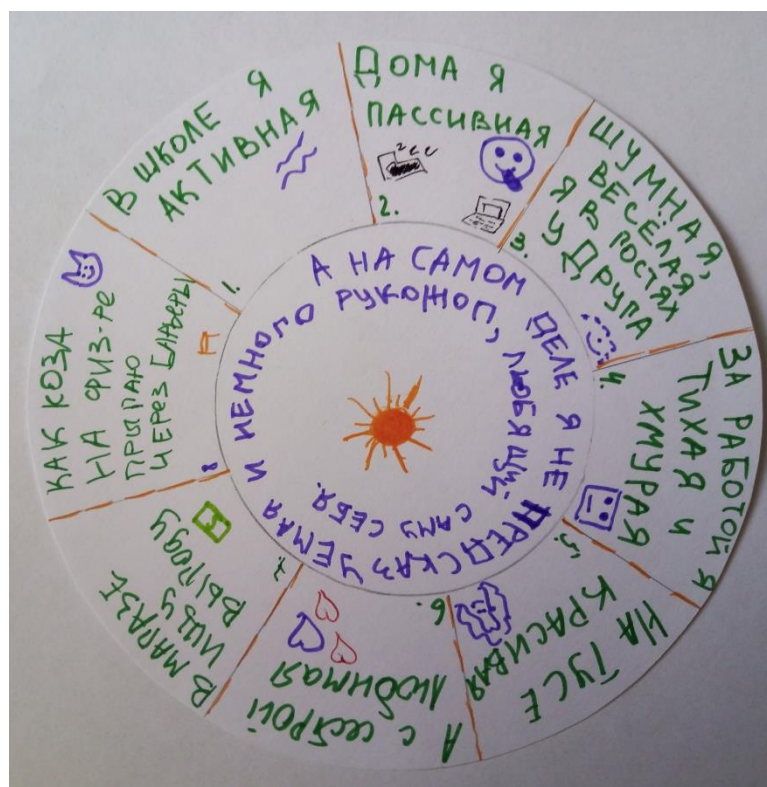 1.
В ШКОЛЕ Я
АКТИВНАЯ
2.
ДОМА Я
ПАССИВНАЯ
zzz
3.
ШУМНАЯ,
ВЕСЁЛАЯ
Я В ГОСТЯХ
У ДРУГА
4.
ЗА РАБОТОЙ Я
ТИХАЯ И
ХМУРАЯ
5.
НА ТУСЕ
КРАСИВАЯ
6.
А С СЕСТРОЙ
ЛЮБИМАЯ
7.
В МАГАЗЕ
ИЩУ
ВЫГОДУ
8
КАК КОЗА
НА ФИЗ-РЕ
ПРЫГАЮ
ЧЕРЕЗ БАРЬЕРЫ
А НА САМОМ ДЕЛЕ Я НЕ ПРЕДСКАЗУЕМАЯ И НЕМНОГО
РУКОЖОП, ЛЮБЯЩИЙ САМУ СЕБЯ.